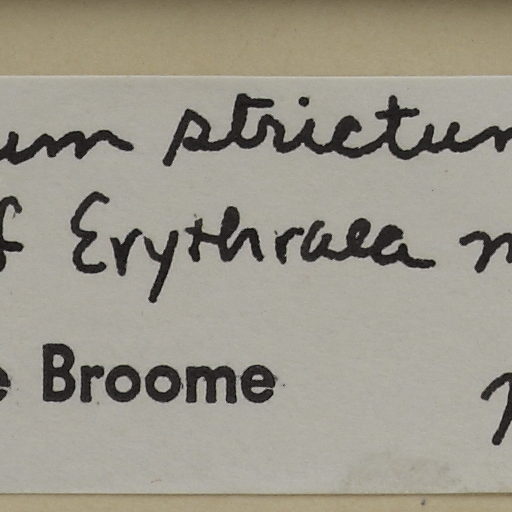 um strictum
f Erythraea m
e Broome